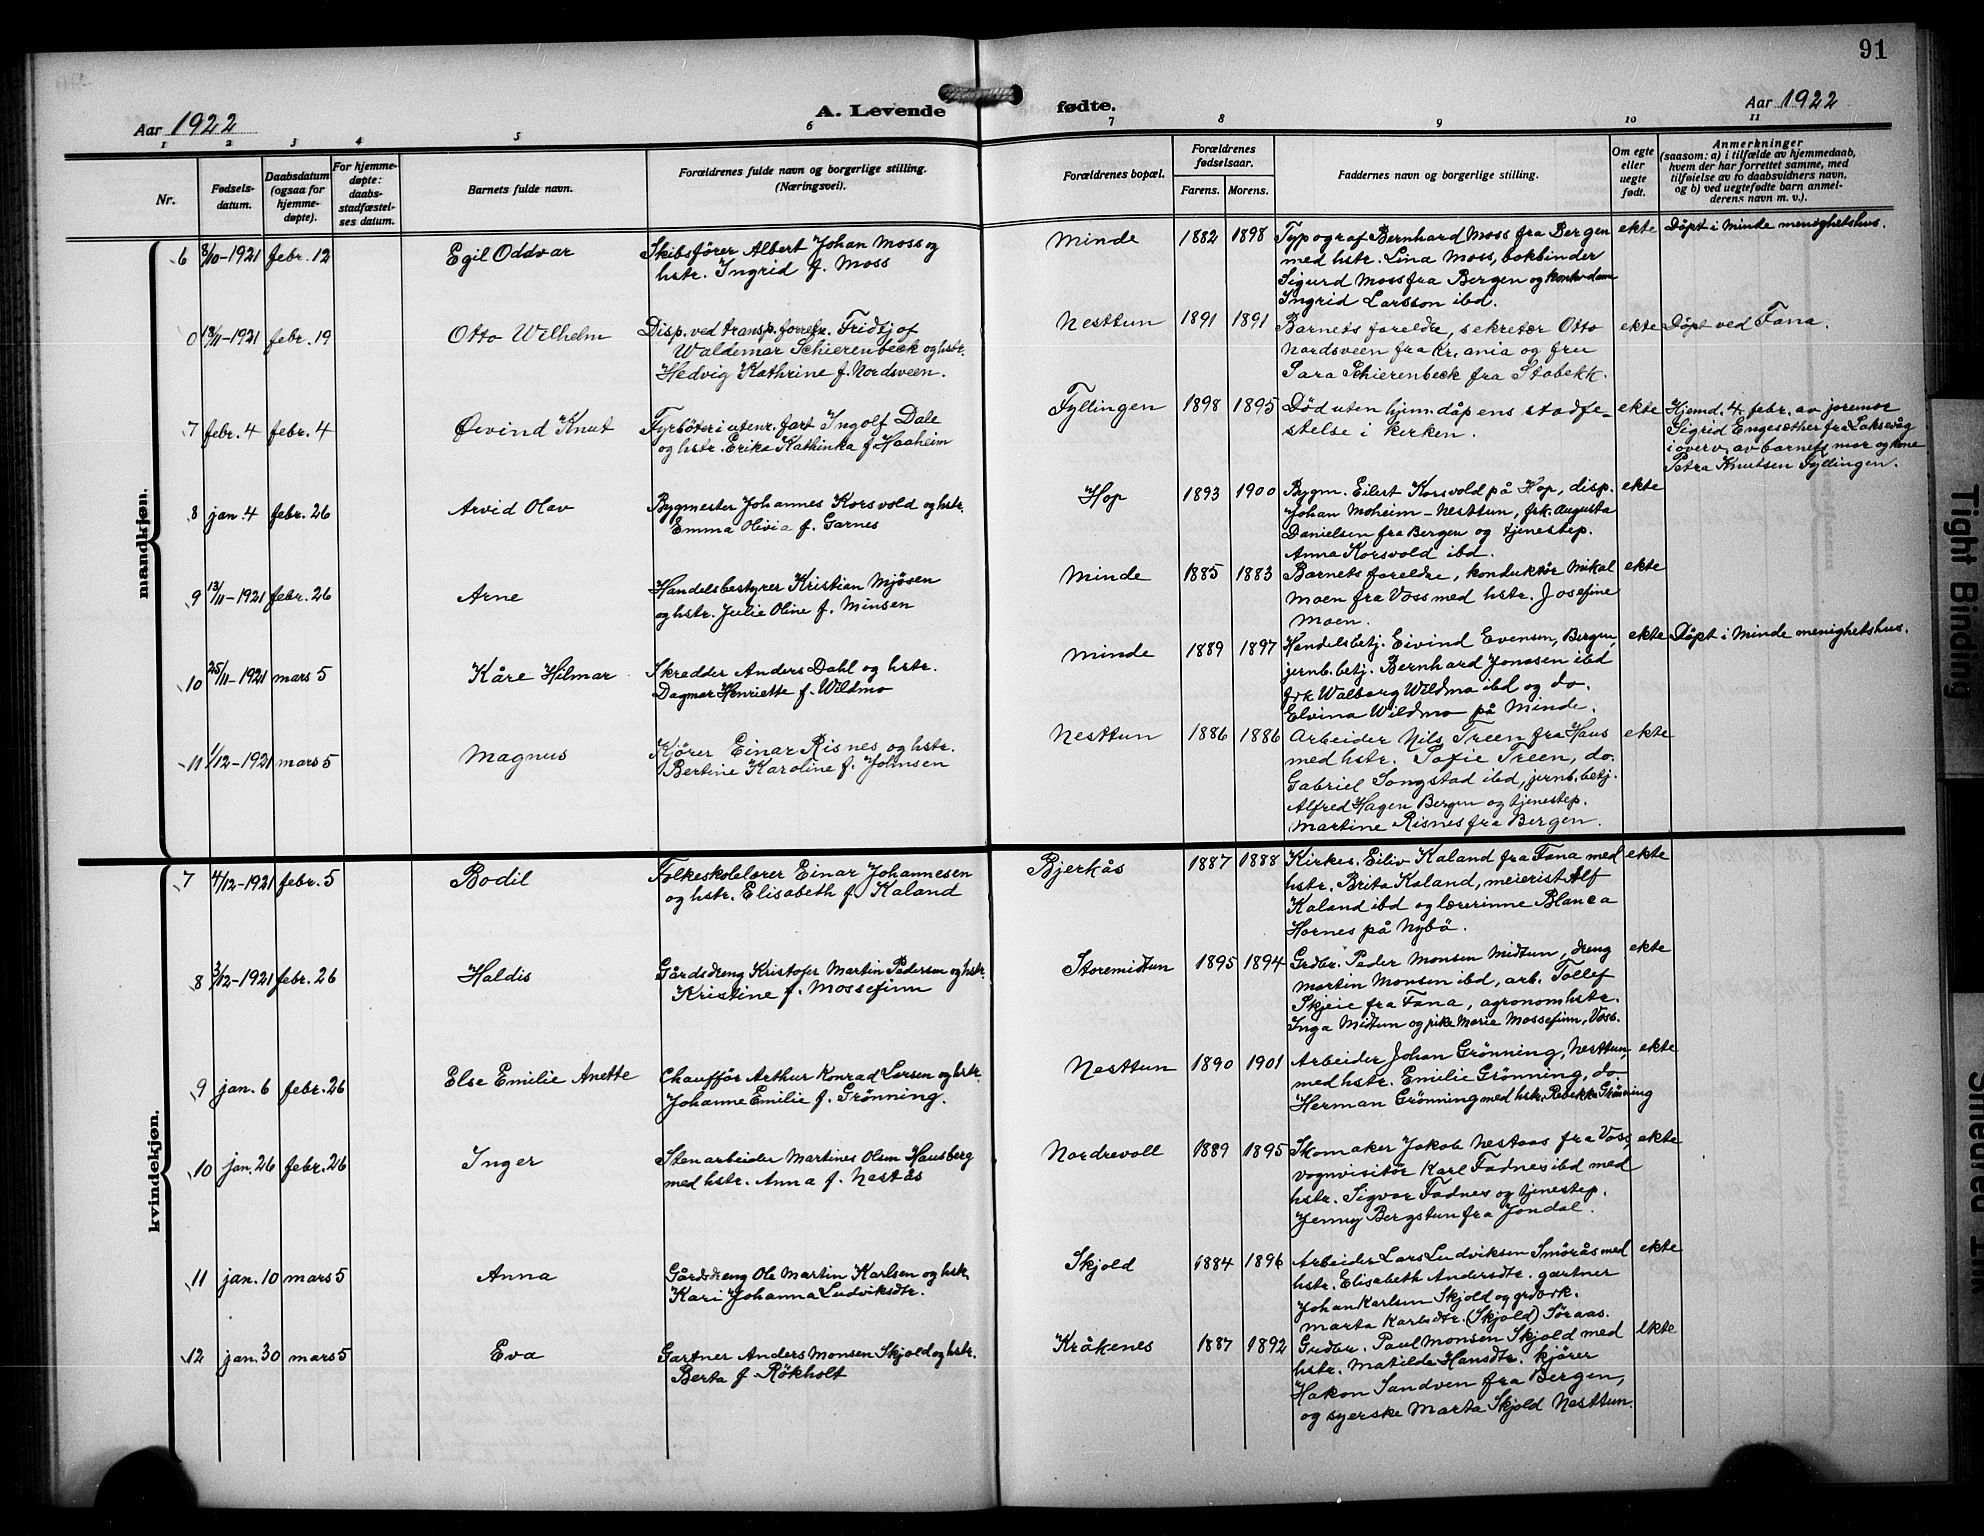 91
Aar 1922
A. Levende fødte.
Aar 1922
1 2 3 4 5 6 7 8 9 10 11
Nr.
Fødsels-
datum.
Daabsdatum
(ogsaa for
hjemme-
døpte).
For hjemme-
døpte:
daabs-
stadfæstel-
ses datum.
Barnets fulde navn.
Forældrenes fulde navn og borgerlige stilling.
(Næringsvei).
Forældrenes bopæl.
Forældrenes
fødselsaar.
Farens. Morens.
Faddernes navn og borgerlige stilling.
Om egte
eller
uegte
født.
Anmerkninger
(saasom: a) i tilfælde av hjemmedaab,
hvem der har forrettet samme, med
tilføielse av to daabsvidners navn,
og b) ved uegtefødte barn anmel-
derens navn m. v.).
mandkjøn.
6 3/10-1921 febr. 12 Egil Oddvar
Skibsfører Albert Johan Moss og
hstr. Ingrid f. Moss
Minde 1882 1898
Typograf Bernhard Moss fra Bergen
med hstr. Lina Moss, bokbinder
Sigurd Moss fra Bergen og kontordame
Ingrid Larsson ibd.
ekte Döpt i Minde menighetshus.
0 13/11-1921 febr. 19 Otto Wilhelm
Disp. ved transp. forretn. Fridtjof
Waldemar Schierenbeck og hstr.
Hedvig Kathrine f. Nordsveen.
Nesttun 1891 1891
Barnets foreldre, sekretær Otto
Nordsveen fra Kr.ania og fru
Sara Schierenbeck fra Stabekk.
ekte Döpt ved Fana.
7 febr. 4 febr. 4 Øivind Knut
Fyrböter i utenr. fart Ingolf Dale
og hstr. Erika Kathinka f. Haaheim
Fyllingen 1898 1895
Död uten hjem.dåpens stadfe-
stelse i kirken.
ekte Hjemd. 4. febr. av jormor
Sigrid Engesæther fra Laksevåg
i overv. av barnets mor og kone
Petra Knutsen Fyllingen.
8 jan. 4 febr. 26 Arvid Olav
Bygmester Johannes Korsvold og hstr.
Emma Olivia f. Garnes
Hop 1893 1900
Bygm. Eilert Korsvold på Hop, disp.
Johan Moheim - Nesttun, frk. Augusta
Danielsen fra Bergen og tjenestep.
Anna Korsvold ibd.
ekte
9 13/11-1921 febr. 26 Arne
Handelsbestyrer Kristian Mjøsen
og hstr. Julie Oline f. Minsen
Minde 1885 1883
Barnets foreldre, konduktør Mikal
Moen fra Voss med hstr. Josefine
Moen.
ekte
10 25/11-1921 mars 5 Kåre Hilmar
Skredder Anders Dahl og hstr.
Dagmar Henriette f. Wildmo
Minde 1889 1897
Handelsbetj. Eivind Evensen, Bergen,
jernb.betj. Bernhard Jonasen ibd
frk Walborg Wildmo ibd og do.
Elvina Wildmo på Minde.
ekte Döpt i Minde menighetshus.
11 1/12-1921 mars 5 Magnus
Kjører Einar Risnes og hstr.
Bertine Karoline f. Johnsen
Nesttun 1886 1886
Arbeider Nils Treen fra Haus
med hstr. Sofie Treen, do.
Gabriel Songstad ibd, jernb.betj.
Alfred Hagen Bergen og tjenestep.
Martine Risnes fra Bergen.
ekte
kvindekjøn.
7 4/12-1921 febr. 5 Bodil
Folkeskolelærer Einar Johannesen
og hstr. Elisabeth f. Kaland
Bjerkås 1887 1888
Kirkes. Eiliv Kaland fra Fana med
hstr. Brita Kaland, meierist Alf
Kaland ibd og lærerinne Blanca
Hornes på Nybö.
ekte
8 3/12-1921 febr. 26 Haldis
Gårdsdreng Kristofer Martin Pedersen og hstr.
Kristine f. Mossefinn
Storemidtun 1895 1894
Grdbr. Peder Monsen Midtun, dreng
Martin Monsen ibd, arb. Tollef
Skjeie fra Fana, agronomhstr.
Inga Midtun og pike Marie Mossefinn, Voss.
ekte
9 jan. 6 febr. 26 Else Emilie Anette
Chauffør Arthur Konrad Larsen og hstr.
Johanne Emilie f. Grönning.
Nesttun 1890 1901
Arbeider Johan Grönning, Nesttun,
med hstr. Emilie Grönning, do
Herman Grönning med hstr. Rebekka Grönning
ekte
10 jan. 26 febr. 26 Inger
Stenarbeider Martines Olsen Hausberg
med hstr. Anna f. Nestås
Nordrevoll 1889 1895
Skomaker Jakob Nestaas fra Voss,
vognvisitör Karl Fadnes ibd med
hstr. Sigvor Fadnes og tjenestep.
Jenny Bergstun fra Jondal.
ekte
11 jan. 10 mars 5 Anna
Gårdsdreng Ole Martin Karlsen og hstr.
Kari Johanna Ludviksdtr.
Skjold 1884 1896
Arbeider Lars Ludviksen Smörås med
hstr. Elisabeth Andersdtr. gartner
Johan Karlsen Skjold og grdbrk.
Marta Karlsdtr. (Skjold) Söraas.
ekte
12 jan. 30 mars 5 Eva
Gartner Anders Monsen Skjold og hstr.
Berta f. Rökholt
Kråkenes 1887 1892
Grdbr. Paul Monsen Skjold med
hstr. Matilde Hansdtr. kjører
Hakon Sandven fra Bergen,
og syerske Marta Skjold Nesttun.
ekte
Tight Binding
Smeared Ink